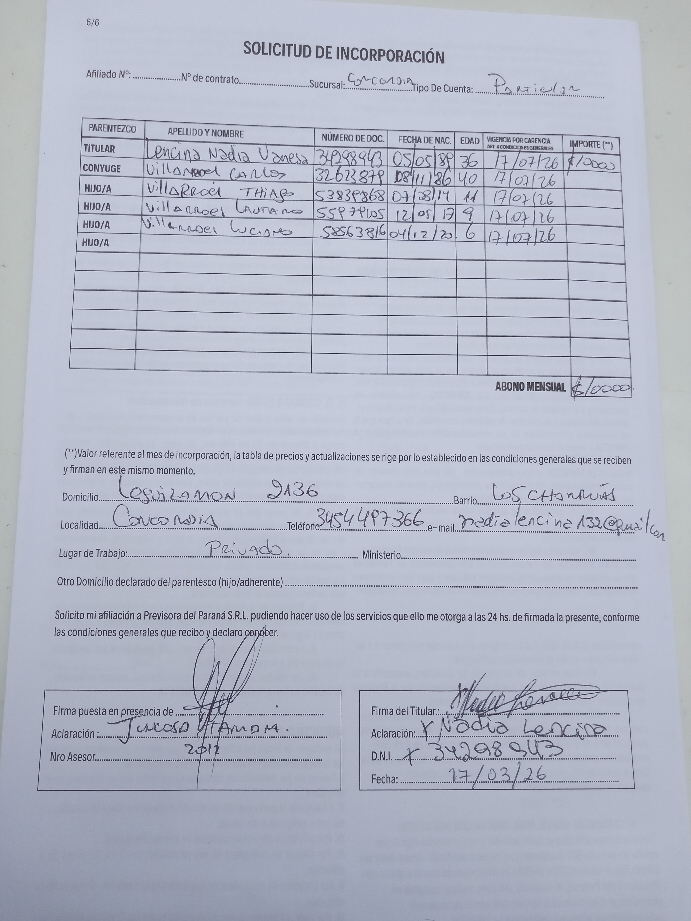 5/6
SOLICITUD DE INCORPORACIÓN
Afiliado Nº: Nº de contrato Sucursal: Concordia Tipo De Cuenta: Particular
PARENTEZCO APELLIDO Y NOMBRE NÚMERO DE DOC. FECHA DE NAC. EDAD VIGENCIA POR CARENCIA IMPORTE (**)
TITULAR Lencina Nadia Vanesa 34298943 05/05/89 36 17/07/26 $10000
CONYUGE Villarroel Carlos 32623879 08/11/86 40 17/07/26
HIJO/A Villarroel Thiago 53839868 07/08/14 11 17/07/26
HIJO/A Villarroel Lautaro 55979105 12/05/17 9 17/07/26
HIJO/A Villarroel Luciano 58563816 04/12/20 6 17/07/26
HIJO/A
ABONO MENSUAL $10000
(**)Valor referente al mes de incorporación, la tabla de precios y actualizaciones se rige por lo establecido en las condiciones generales que se reciben
y firman en este mismo momento.
Domicilio Leguizamon 2136 Barrio Los Charrúas
Localidad Concordia Teléfono 3454497366 e-mail nadialencina132@gmail.com
Lugar de Trabajo: Privado. Ministerio
Otro Domicilio declarado del parentesco (hijo/adherente)
Solicito mi afiliación a Previsora del Paraná S.R.L. pudiendo hacer uso de los servicios que ello me otorga a las 24 hs. de firmada la presente, conforme
las condiciones generales que recibo y declaro conocer.
Firma puesta en presencia de
Aclaración:
Nro Asesor 2012
Firma del Titular:
Aclaración: x Nadia Lencina
D.N.I. x 34298943
Fecha: 17/03/26